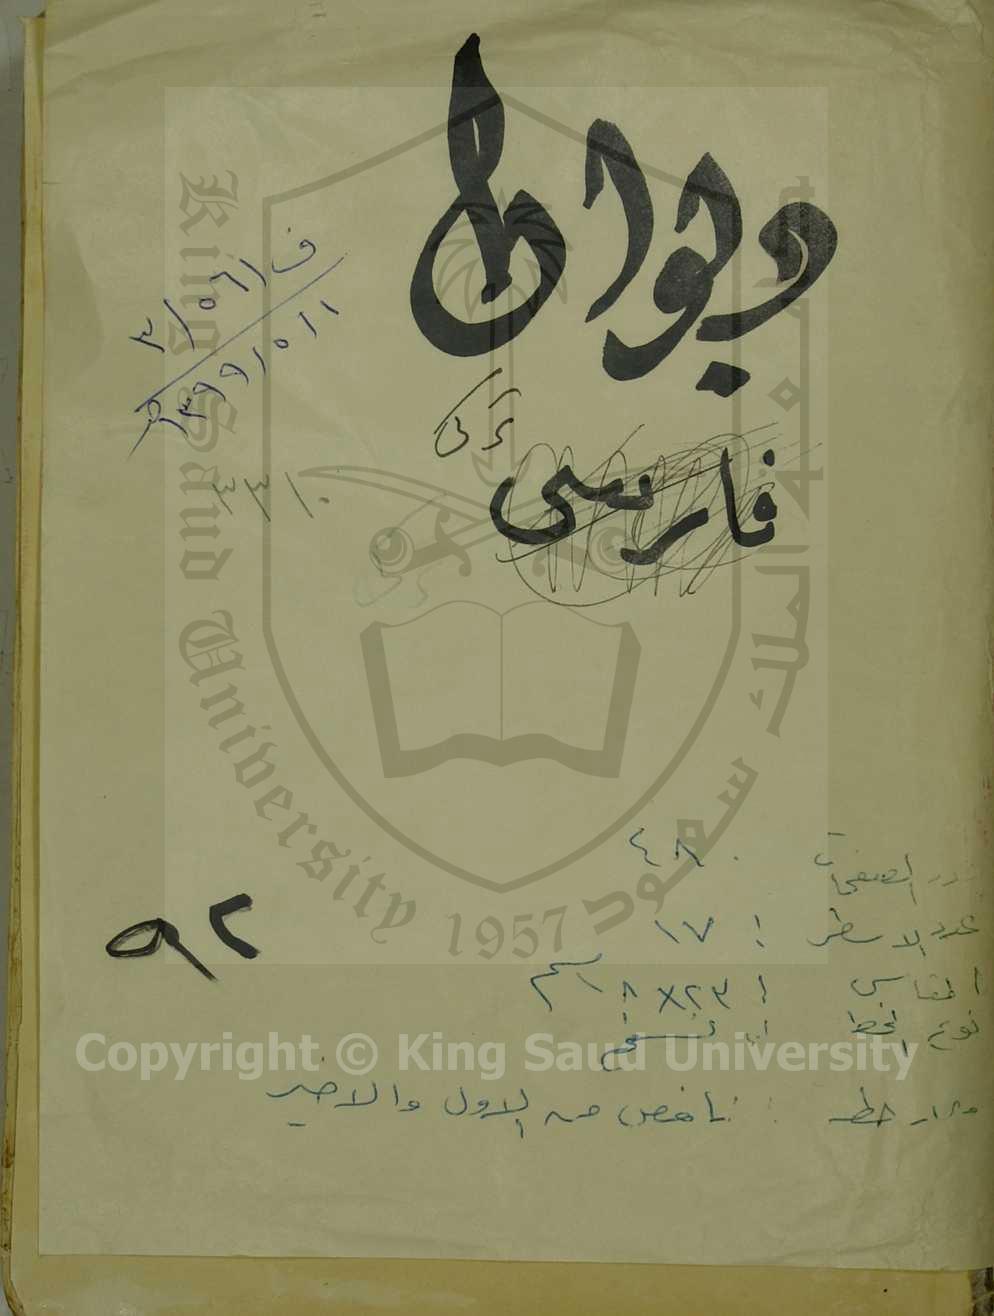 ديوان
تركي
فارسي
عدد الصفحات ٤٨٠
عدد الاسطر : ١٧
المقاس : ٢٣×٨ اسم
نوع الخط : نسخ
ملاحظه : ناقص من الاول والاخير
٩٢
King Saud University
1957
جامعة الملك سعود
Copyright © King Saud University